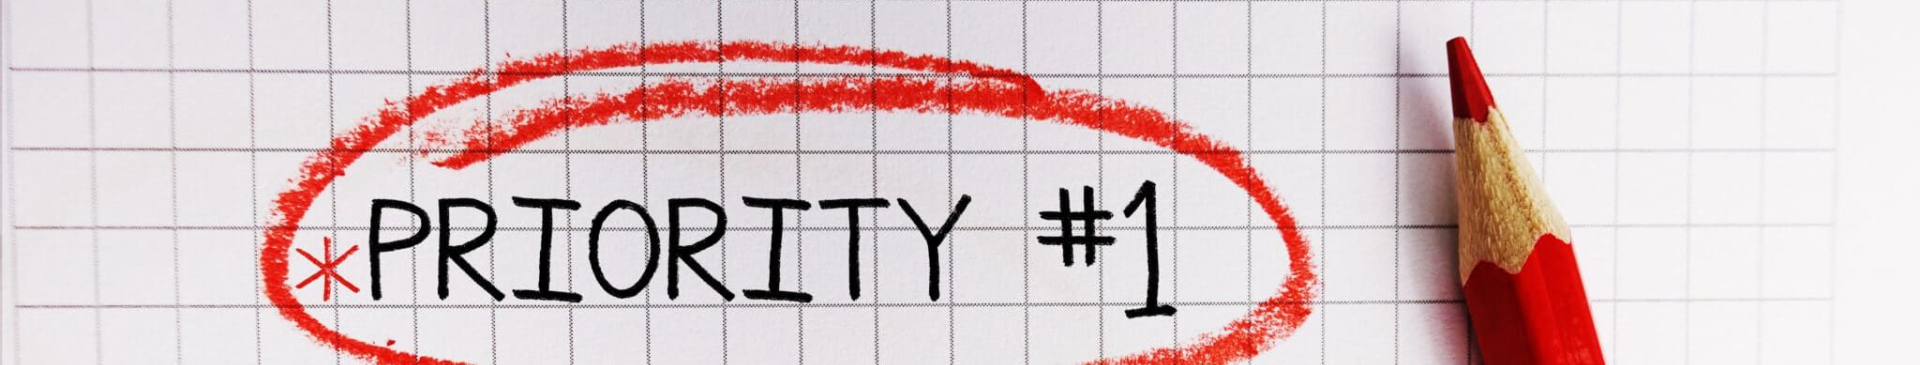 *PRIORITY #1